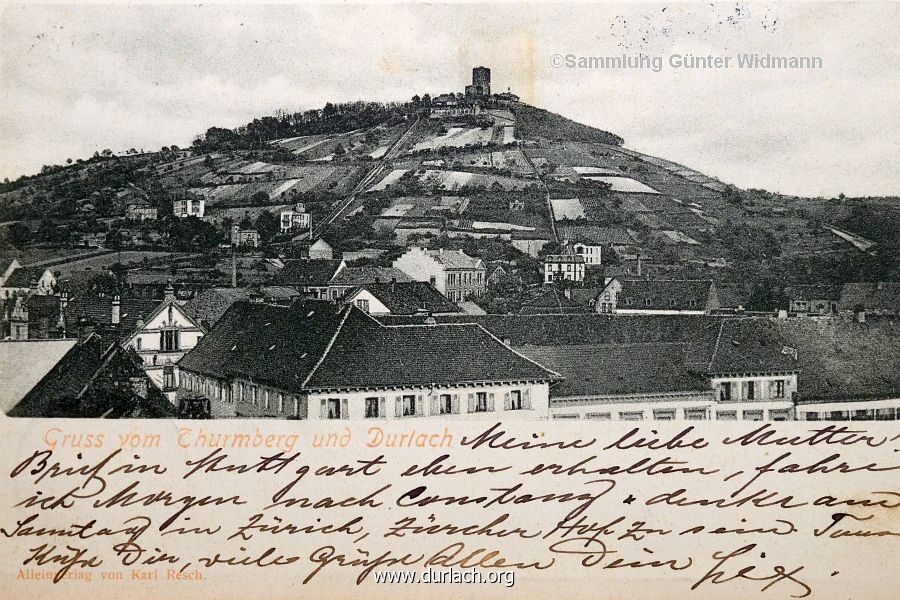 ©Sammlung Günter Widmann
Gruss vom Thurmberg und Durlach
Meine liebe Mutter!
Brief in Stuttgart eben erhalten, fahre
ich Morgen nach Constanz & denke am
Samstag in Zürich, Zürcher Hof zu sein
Küße Dir, vieles Grüße Allen Dein
Alleinverlag von Karl Resch.
www.durlach.org